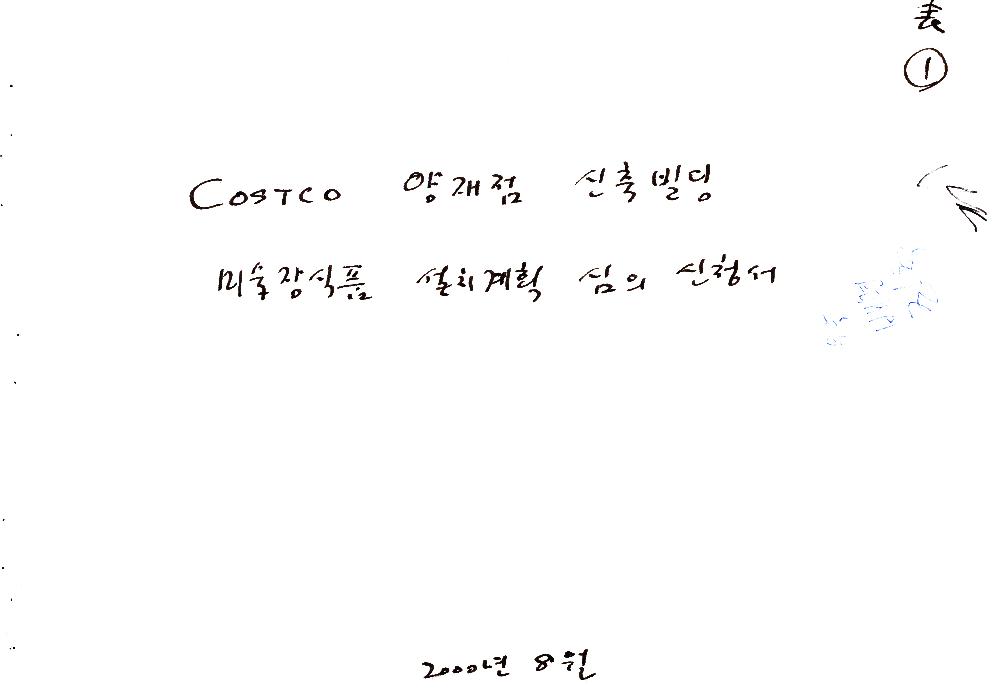 表
①
COSTCO 양재점 신축빌딩
미술장식품 설치계획 심의 신청서
2000년 8월